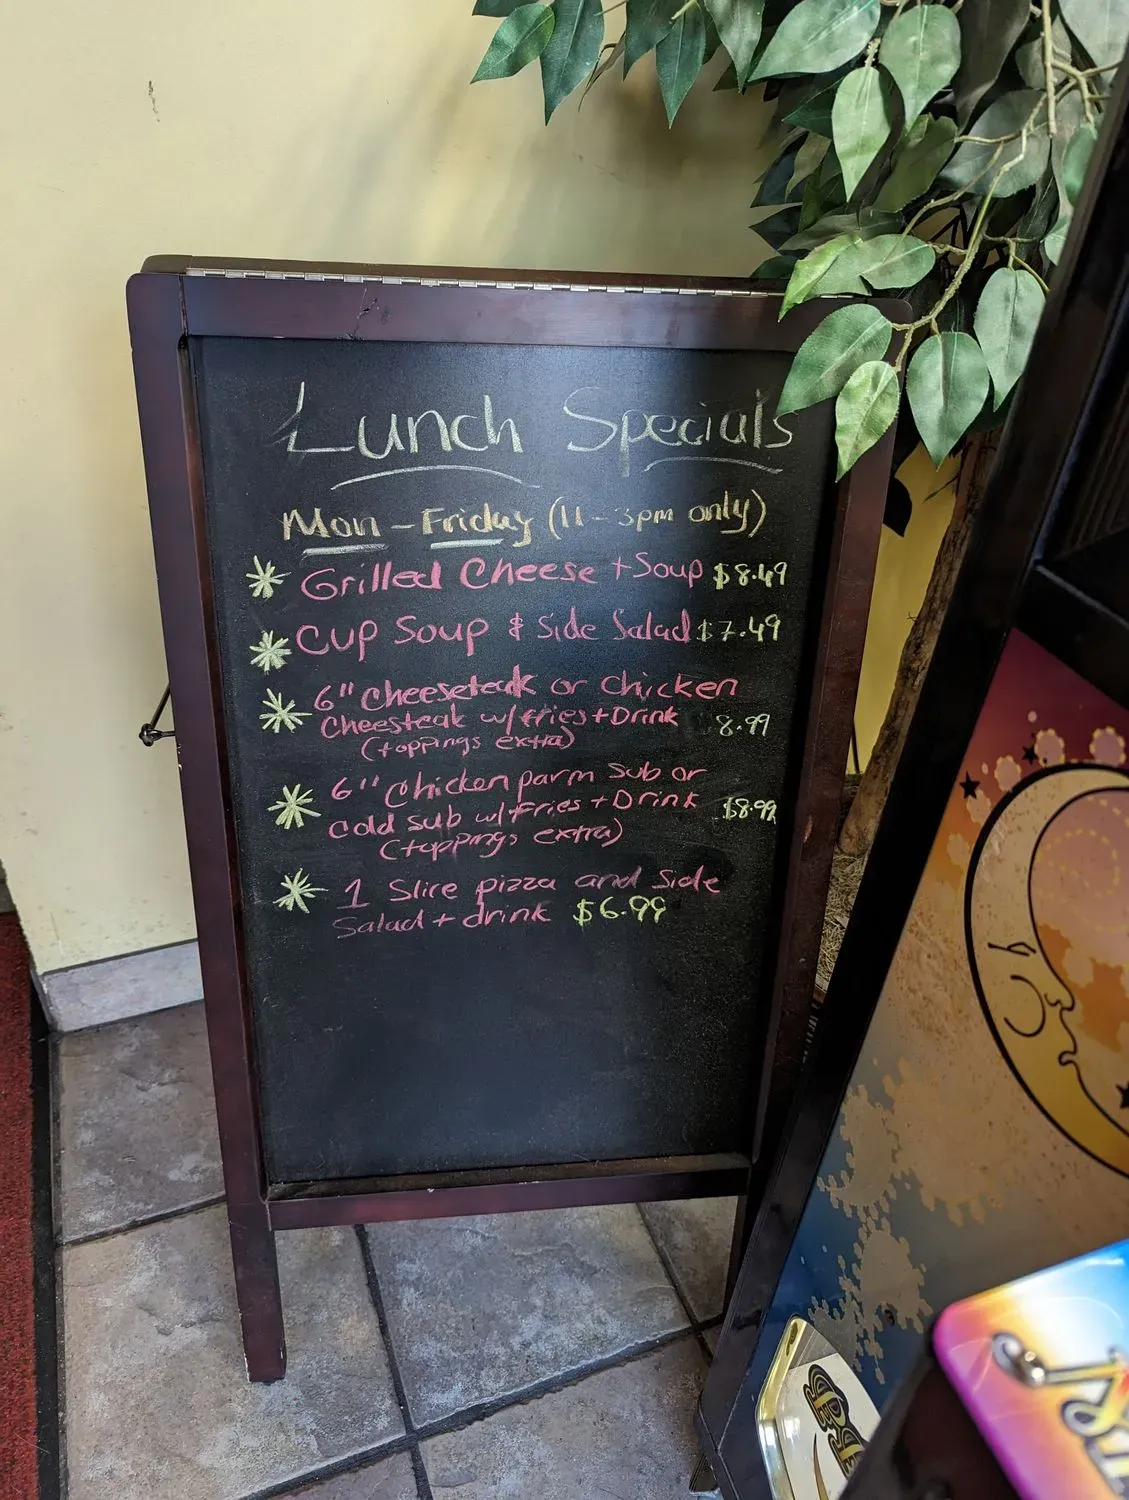 Lunch Specials
Mon - Friday (11 - 3pm only)
Grilled Cheese + Soup $8.49
Cup Soup & Side Salad $7.49
6" Cheeseteak or Chicken
Cheesteak w/ fries + Drink 8.99
(toppings extra)
6" Chicken parm Sub or
Cold sub w/ Fries + Drink $8.99
(toppings extra)
1 Slice pizza and Side
Salad + drink $6.99